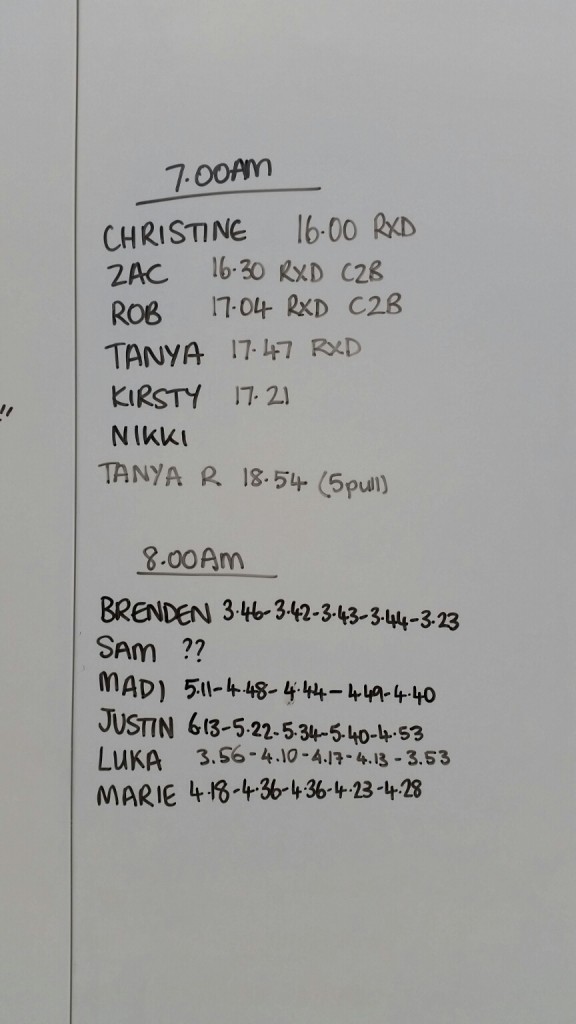 7.00AM
CHRISTINE 16.00 RXD
ZAC 16.30 RXD C2B
ROB 17.04 RXD C2B
TANYA 17.47 RXD
KIRSTY 17.21
NIKKI
TANYA R 18.54 (5pull)
8.00Am
BRENDEN 3.46-3.42-3.43-3.44-3.23
SAM ??
MADI 5.11-4.48-4.44-4.49-4.40
JUSTIN 6.13-5.22-5.34-5.40-4.53
LUKA 3.56-4.10-4.17-4.13-3.53
MARIE 4.18-4.36-4.36-4.23-4.28